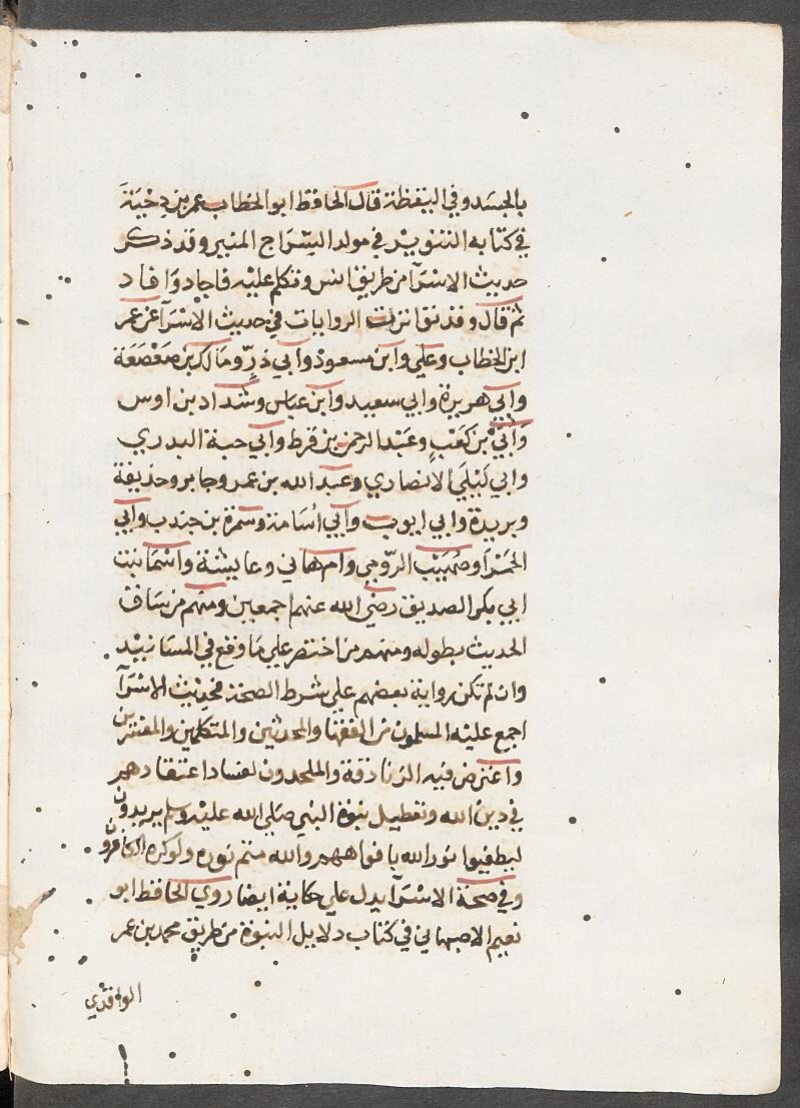 بالجسد وفي اليقظة قال الحافظ ابو الخطاب عمر بن دِحْيَةَ
في كتابه التنوير في مولد السِّرَاج المنير وقد ذكر
حديث الاسرآ من طريق انس وتكلم عليه فاجاد وَافاد
ثم قال وقد تواترت الروايات في حديث الاسْرآ عن عمر
ابن الخطاب وعلي وابن مسعود وابي ذرٍّ ومالك بن صَعْصَعَة
وابي هريرة وابي سعيد وابن عباس وشداد بن اوس
وَأُبَيّ بن كَعْبٍ وعَبْد الرحمن بن قرط وابي حبة البدري
وابي لَيْلَي الانصاري وعبد الله بن عمر وجابر وحذيفة
وبريدة وابي ايوب وابي اُسَامة وسَمُرَة بن جندب وابي
الحَمْرَا وصُهَيْب الرّومِي وام هاني وعايشة واسْمَا بنت
ابي بكر الصديق رضي الله عنهم اجمعين ومنهم من سَاق
الحديث بطوله ومنهم من اختصر علي مَا وقع في المسَانيْد
وان لم تكن رواية بعضهم علي شرط الصحة فحديث الاسْرَآ
اجمع عليه المسلمون من الفقها والمحدثين والمتكلمين والمفسّرين
واعترض فيه الزنادقة والملحدون لفساد اعتقادهم
في دين الله وتعطيل نبوة النبي صَلي الله عليْه وسلم يريدون
ليطفيوا نور الله بافواههم والله متم نوره ولو كره الكافرون
وفي صحة الاسْرَآ يدل علي حكاية ايضا روي الحافظ ابو
نعيم الاصبهاني في كتاب دلايل النبوة من طريق محمد بن عمر
الواقدْي